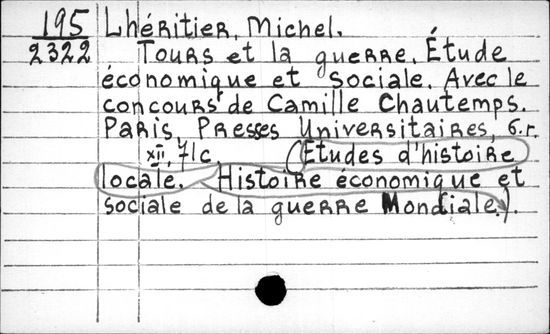 195 Lhéritier, Michel.
2322 Tours et la guerre. Étude
économique et sociale. Avec le
concours de Camille Chautemps.
Paris, Presses Universitaires, s.r.
XII, 71c. (Études d'histoire
locale. Histoire économique et
sociale de la guerre Mondiale.).